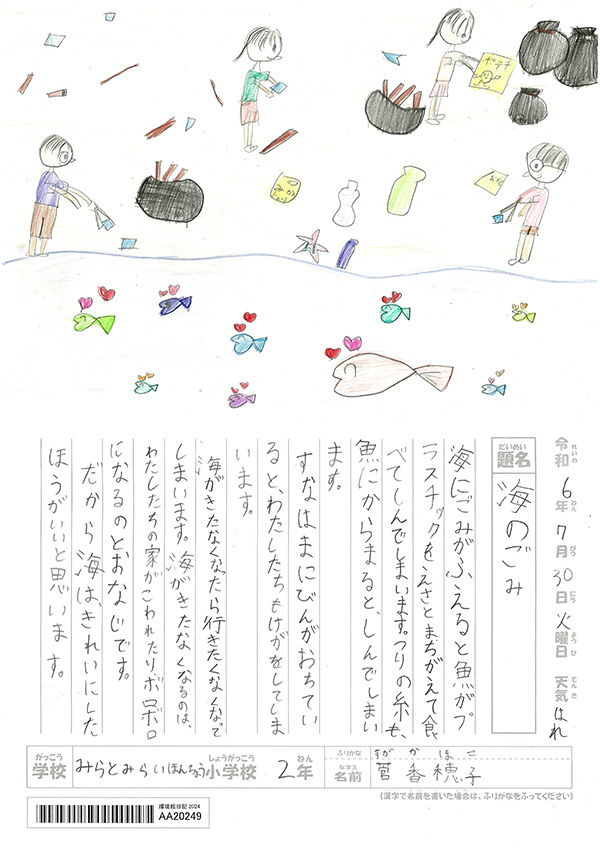 ポテチ
みかん
令和6年7月30日火曜日 天気 はれ
れいわ ねん がつ にち ようび てんき
だいめい
題名
海のごみ
海にごみがふえると魚がプ
ラスチックをえさとまちがえて食
べてしんでしまいます。つりの糸も、
魚にからまると、しんでしまい
ます。
すなはまにびんがおちてい
ると、わたしたちもけがをしてしま
います。
海がきたなくなったら行きたくなくなって
しまいます。海がきたなくなるのは、
わたしたちの家がこわれたりボロボロ
になるのとおなじです。
だから海は、きれいにした
ほうがいいと思います。
がっこう しょうがっこう ねん
学校 みらとみらい本ちょう小学校 2年
ふりがな すが かほこ
なまえ
名前 菅 香穂子
(漢字で名前を書いた場合は、ふりがなをふってください)
環境絵日記 2024
AA20249